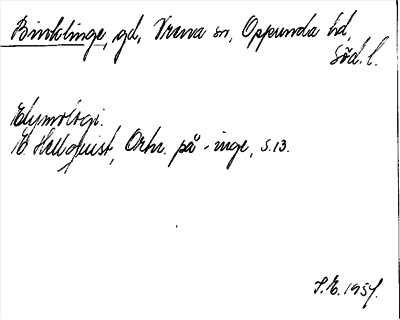 Binklinge, gd, Vrena sn, Oppunda hd,
Söd. l.
Etymologi.
E. Hellquist, Ortn. på -inge, s. 13.
S.E. 1957.